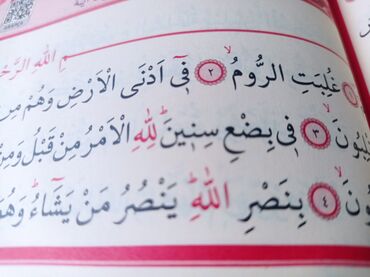 مِ اللّٰهِ الرَّحْ
غُلِبَتِ الرُّومُۙ ﴿٢﴾ ف۪ٓي اَدْنَى الْاَرْضِ وَهُمْ مِنْ
لِبُونَۙ ﴿٣﴾ ف۪ي بِضْعِ سِن۪ينَۜ لِلّٰهِ الْاَمْرُ مِنْ قَبْلُ وَمِنْ
ونَۙ ﴿٤﴾ بِنَصْرِ اللّٰهِۜ يَنْصُرُ مَنْ يَشَٓاءُۜ وَهُوَ